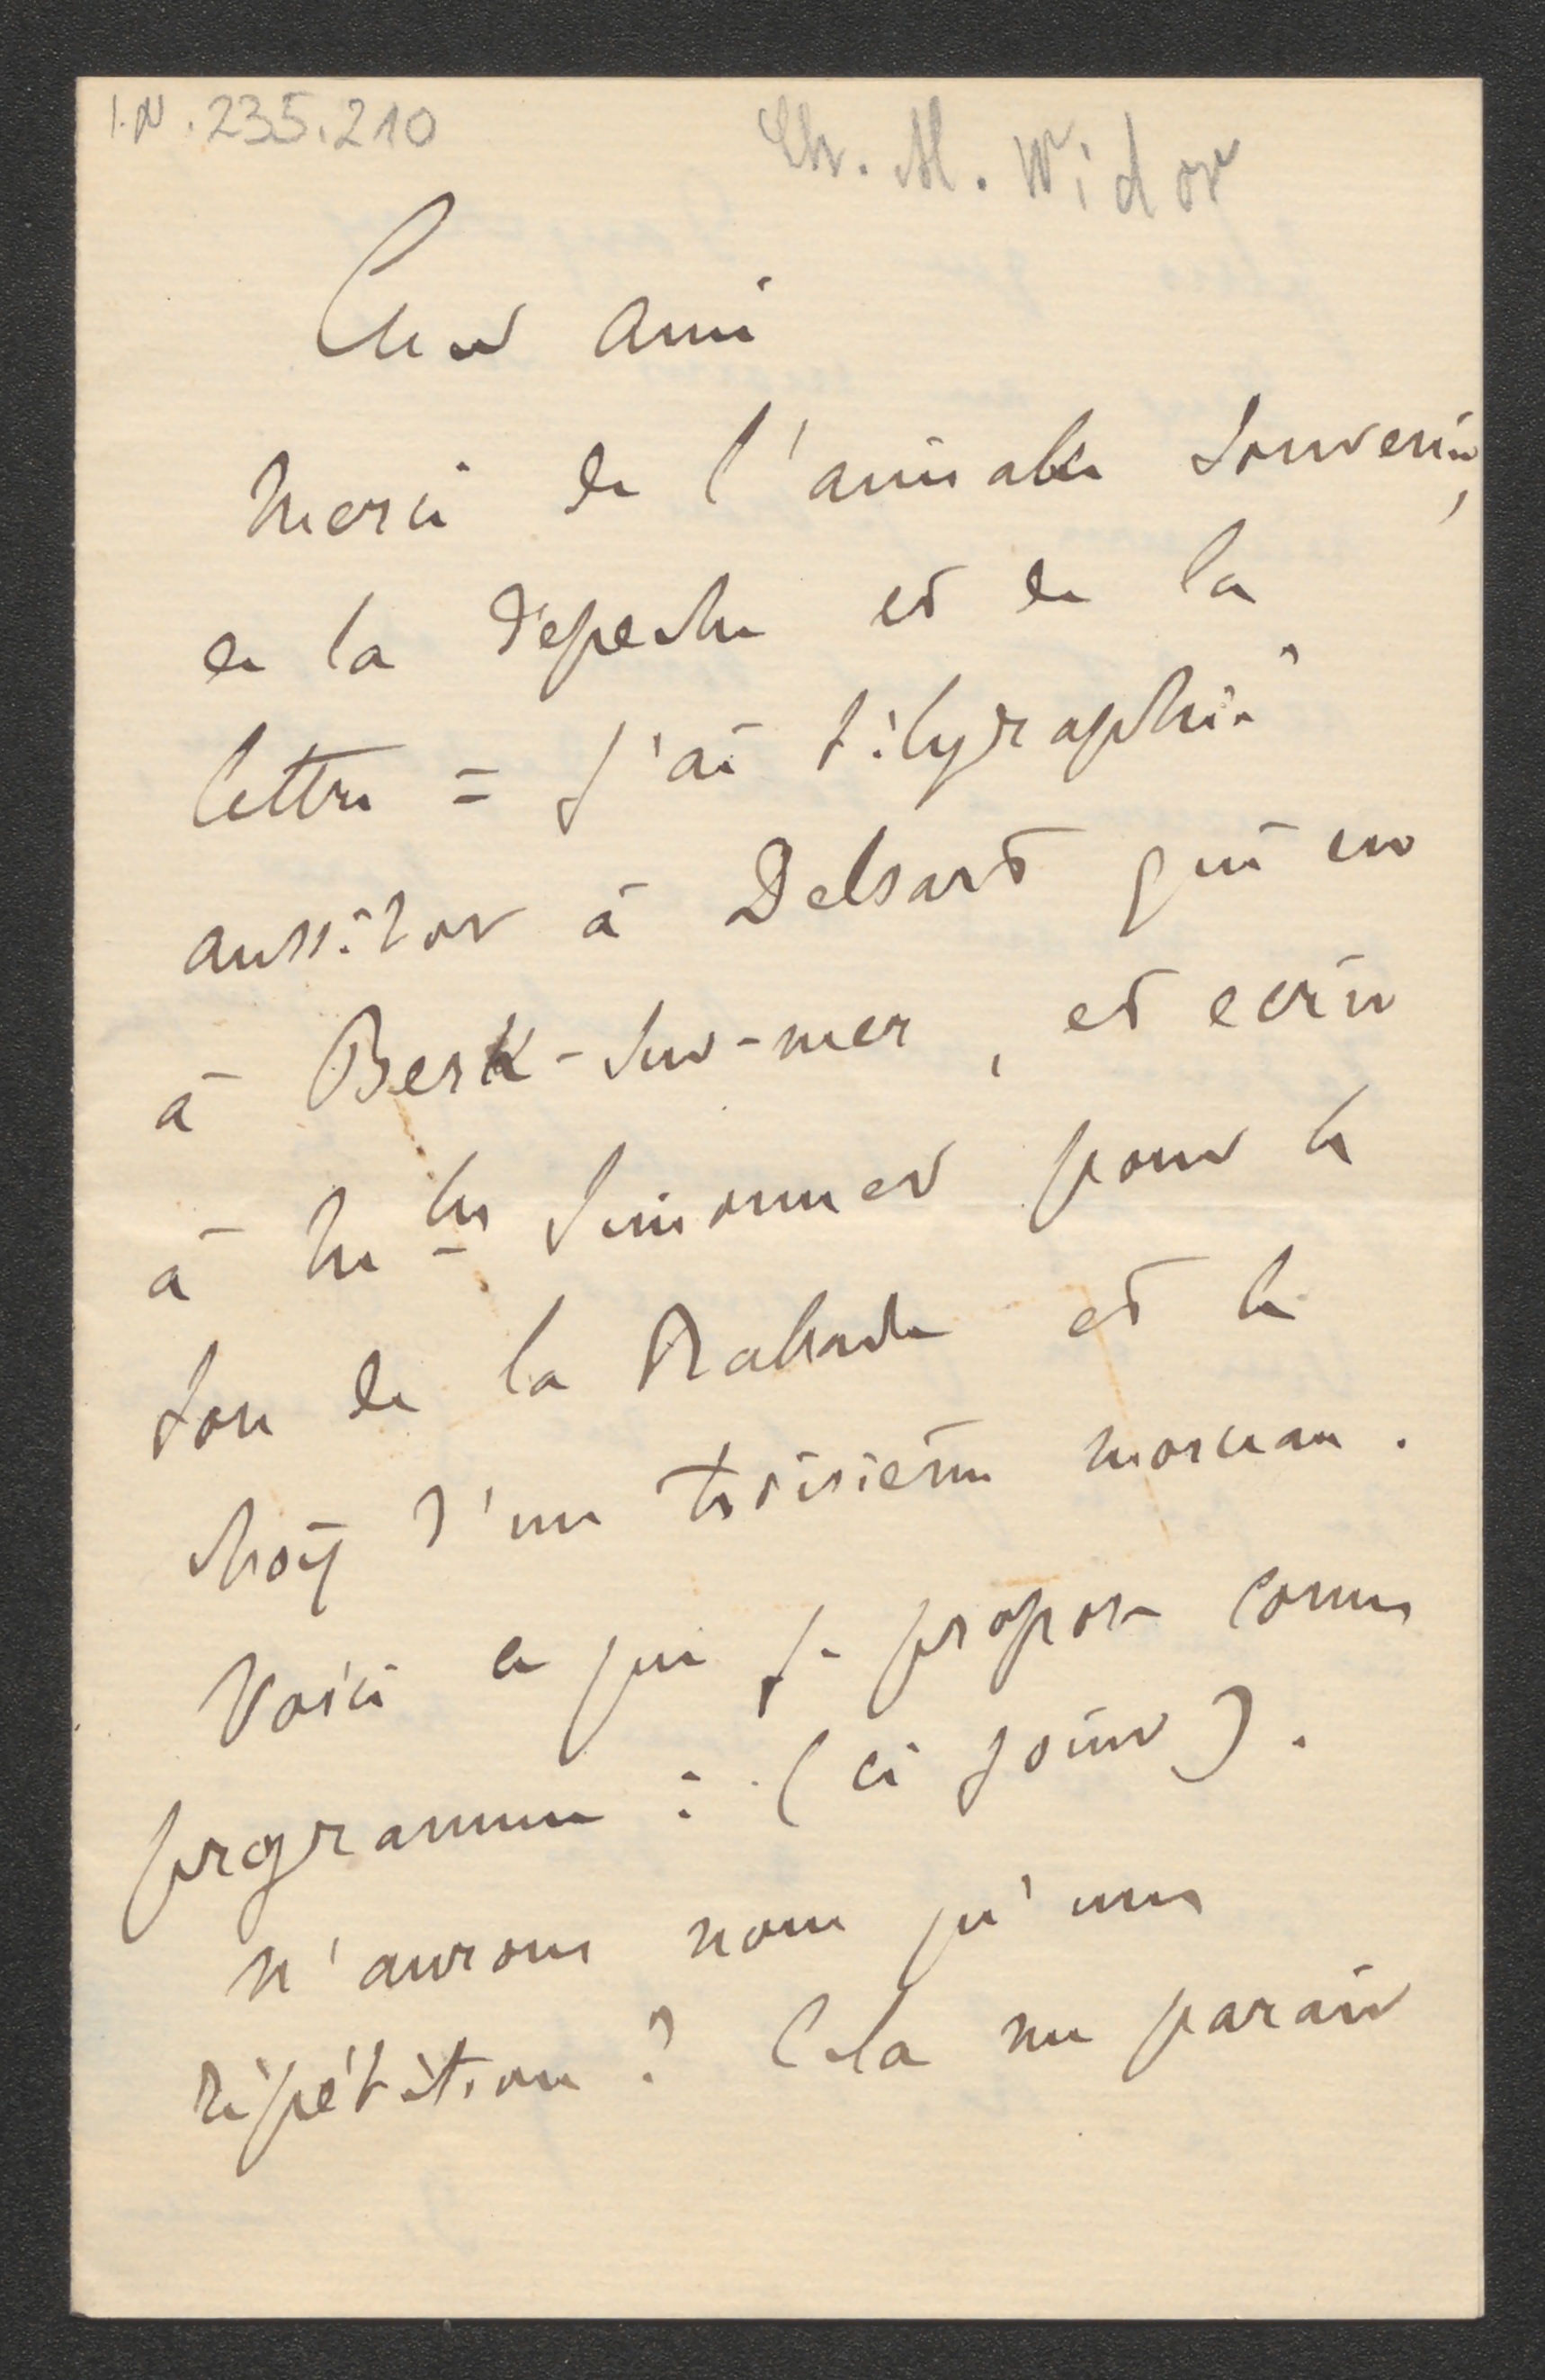 I.N. 235.210
Ch. M. Widor
Cher ami
Merci de l'aimable souvenir,
de la dépeche et de la
lettre = J'ai télégraphié
aussitot à Delsart qui est
à Berk-sur-mer, et ecrit
à Mlle Simonnet pour le
ton de la et le
choix d'un troisième morceau.
Voici ce que je propose comme
programme : (ci joint).
N'aurons nous qu'une
répétition ? Cela me parait